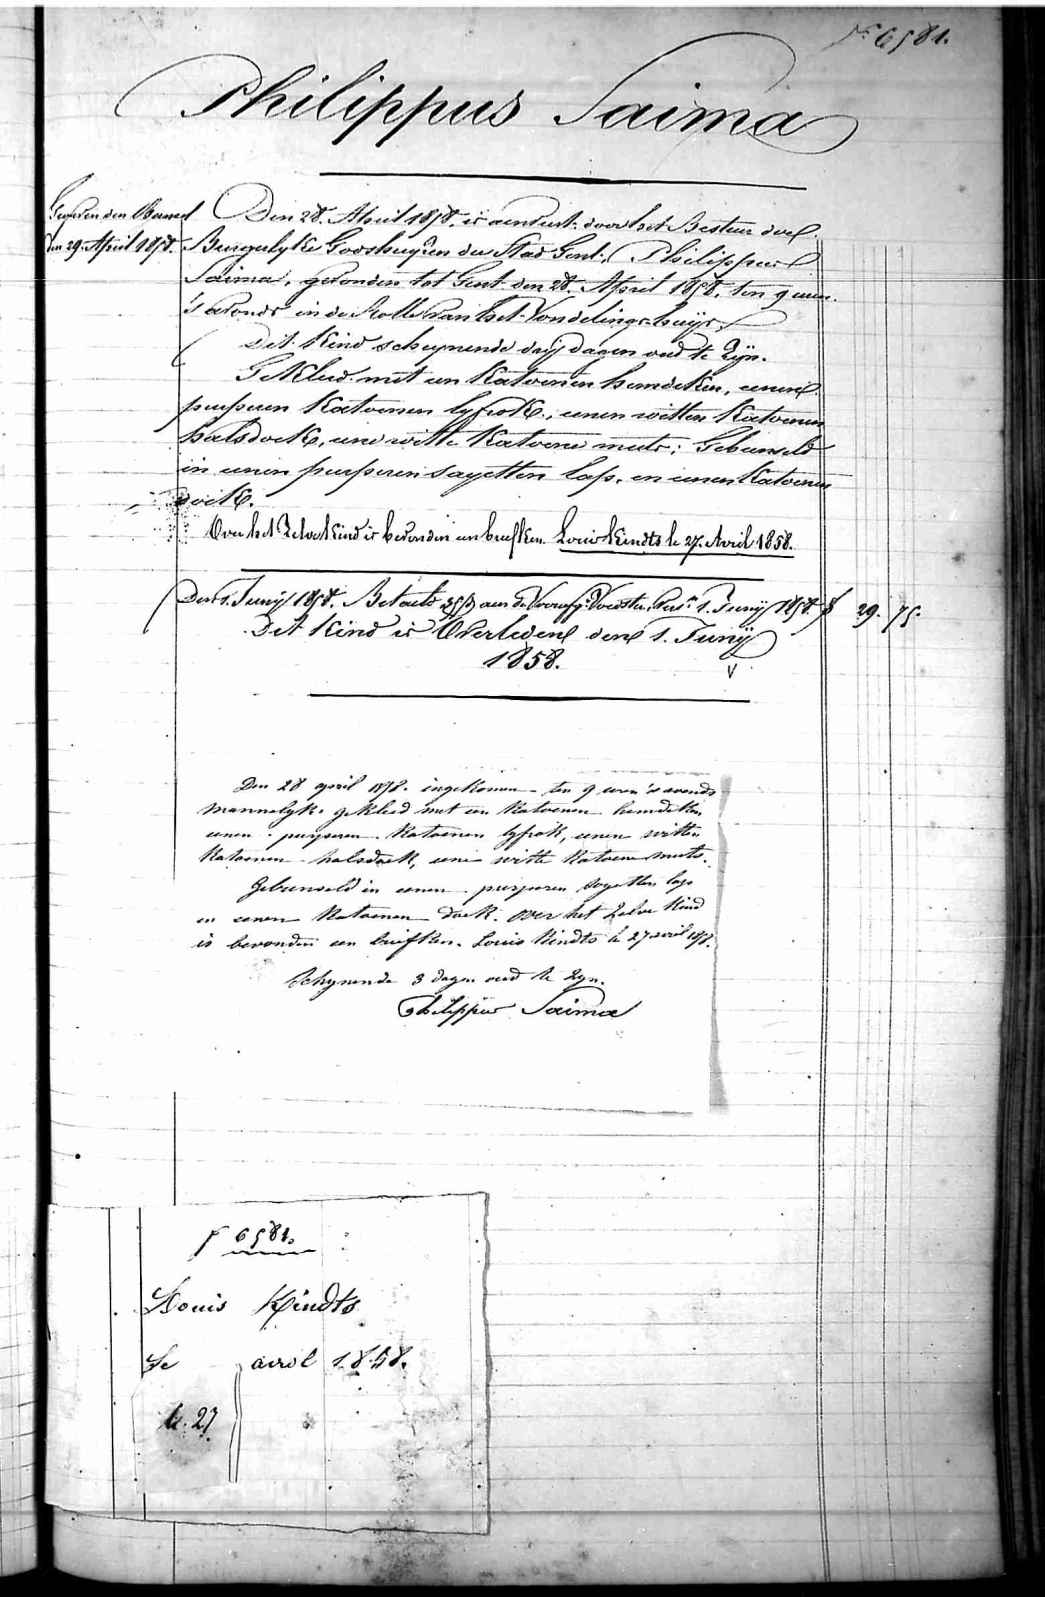 N° 6581.
Philippus Saima
den 29 April 1858.
Den 28. April 1858. is aenveert door het Bestuer der
Burgerlyke Godshuyzen der Stad Gent, Philippus
Saima, gevonden tot Gent den 28. April 1858, ten 9 uren
's avonds in de Rolle van het Vondelingshuys.
Dit Kind schynende dry dagen oud te Zyn.
Gekleed met een Katoenen hemdeken, eenen
purperen Katoenen lyfrok, eenen witten Katoenen
halsdoek, eene witte Katoene muts; Gebunseld
in eenen purperen sayetten lap, en eenen Katoenen
doek.
Over het Zelve Kind is bevonden een briefken Louis Kindts le 27. Avril 1858.
Den 1. Juny 1858. Betaeld aen de Voedster 1. Juny 1858. f 29. 75.
Dit Kind is Overleden den 1. Juny
1858.
Den 28 april 1858. ingekomen ten 9 uren 's avonds
mannelyk gekleed met een Katoenen hemdeken
eenen purperen Katoenen lyfrok, eenen witten
Katoenen halsdoek, eene witte Katoene muts.
Gebunseld in eenen purperen sayetten lap
en eenen Katoenen doek. over het Zelve Kind
is bevonden een briefken. Louis Kindts le 27 avril 1858.
Schynende 3 dagen oud te Zyn.
Philippus Saima
6581.
Louis Kindts
Le avrol 1858.
le. 27